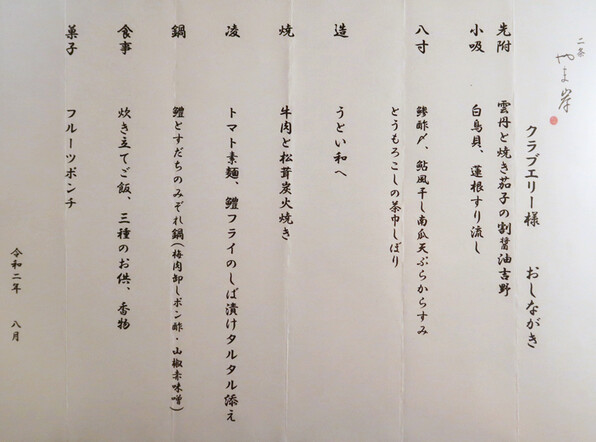 二条
やま岸
クラブエリー様　おしながき
先附　雲丹と焼き茄子の割醤油吉野
小吸　白鳥貝、蓮根すり流し
八寸　鯵酢〆、鮎風干し南瓜天ぷらからすみ
とうもろこしの茶巾しぼり
造　うとい和へ
焼　牛肉と松茸炭火焼き
凌　トマト素麺、鱧フライのしば漬けタルタル添え
鍋　鱧とすだちのみぞれ鍋（梅肉卸しポン酢・山椒赤味噌）
食事　炊き立てご飯、三種のお供、香物
菓子　フルーツポンチ
令和二年　八月